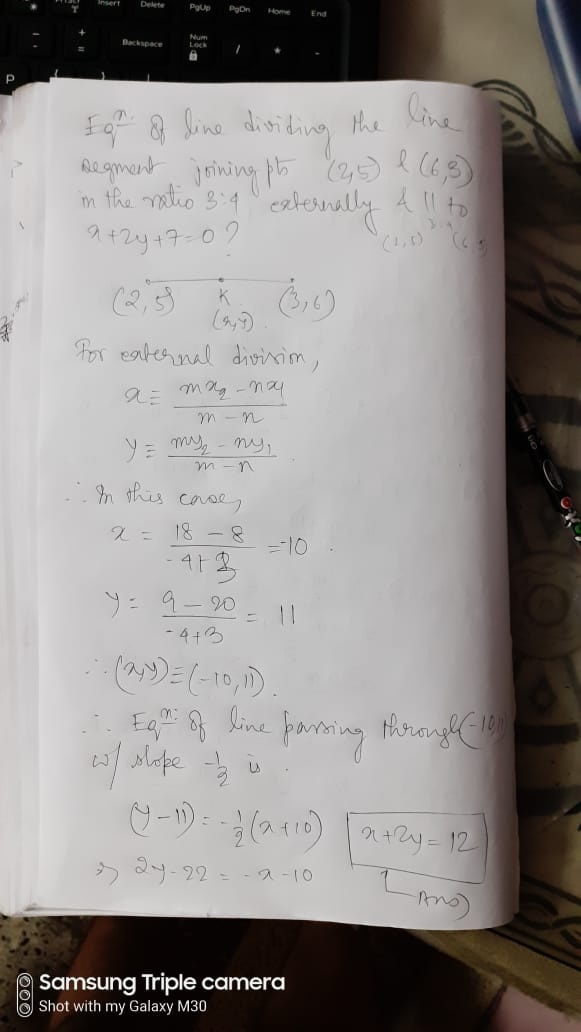 Insert
Delete
PgUp
PgDn
Home
End
Backspace
Num
Lock
/
*
-
+
=
P
Eqn. of line dividing the line
segment joining pts (2,5) & (6,3)
in the ratio 3:4 externally & || to
x+2y+7=0?
(2,5) (6,3)
(2,5) K (3,6)
(x,y)
For external division,
x = mx2 - nx1
m - n
y = my2 - ny1
m - n
∴ In this case,
x = 18 - 8 = -10
-4+3
y = 9 - 20 = 11
-4+3
∴ (x,y) ≡ (-10,11).
∴ Eqn: of line passing through (-10,11)
w/ slope -1/2 is
(y-11) = -1/2(x+10)
⇒ 2y-22 = -x-10
x+2y=12
Ans)
Samsung Triple camera
Shot with my Galaxy M30